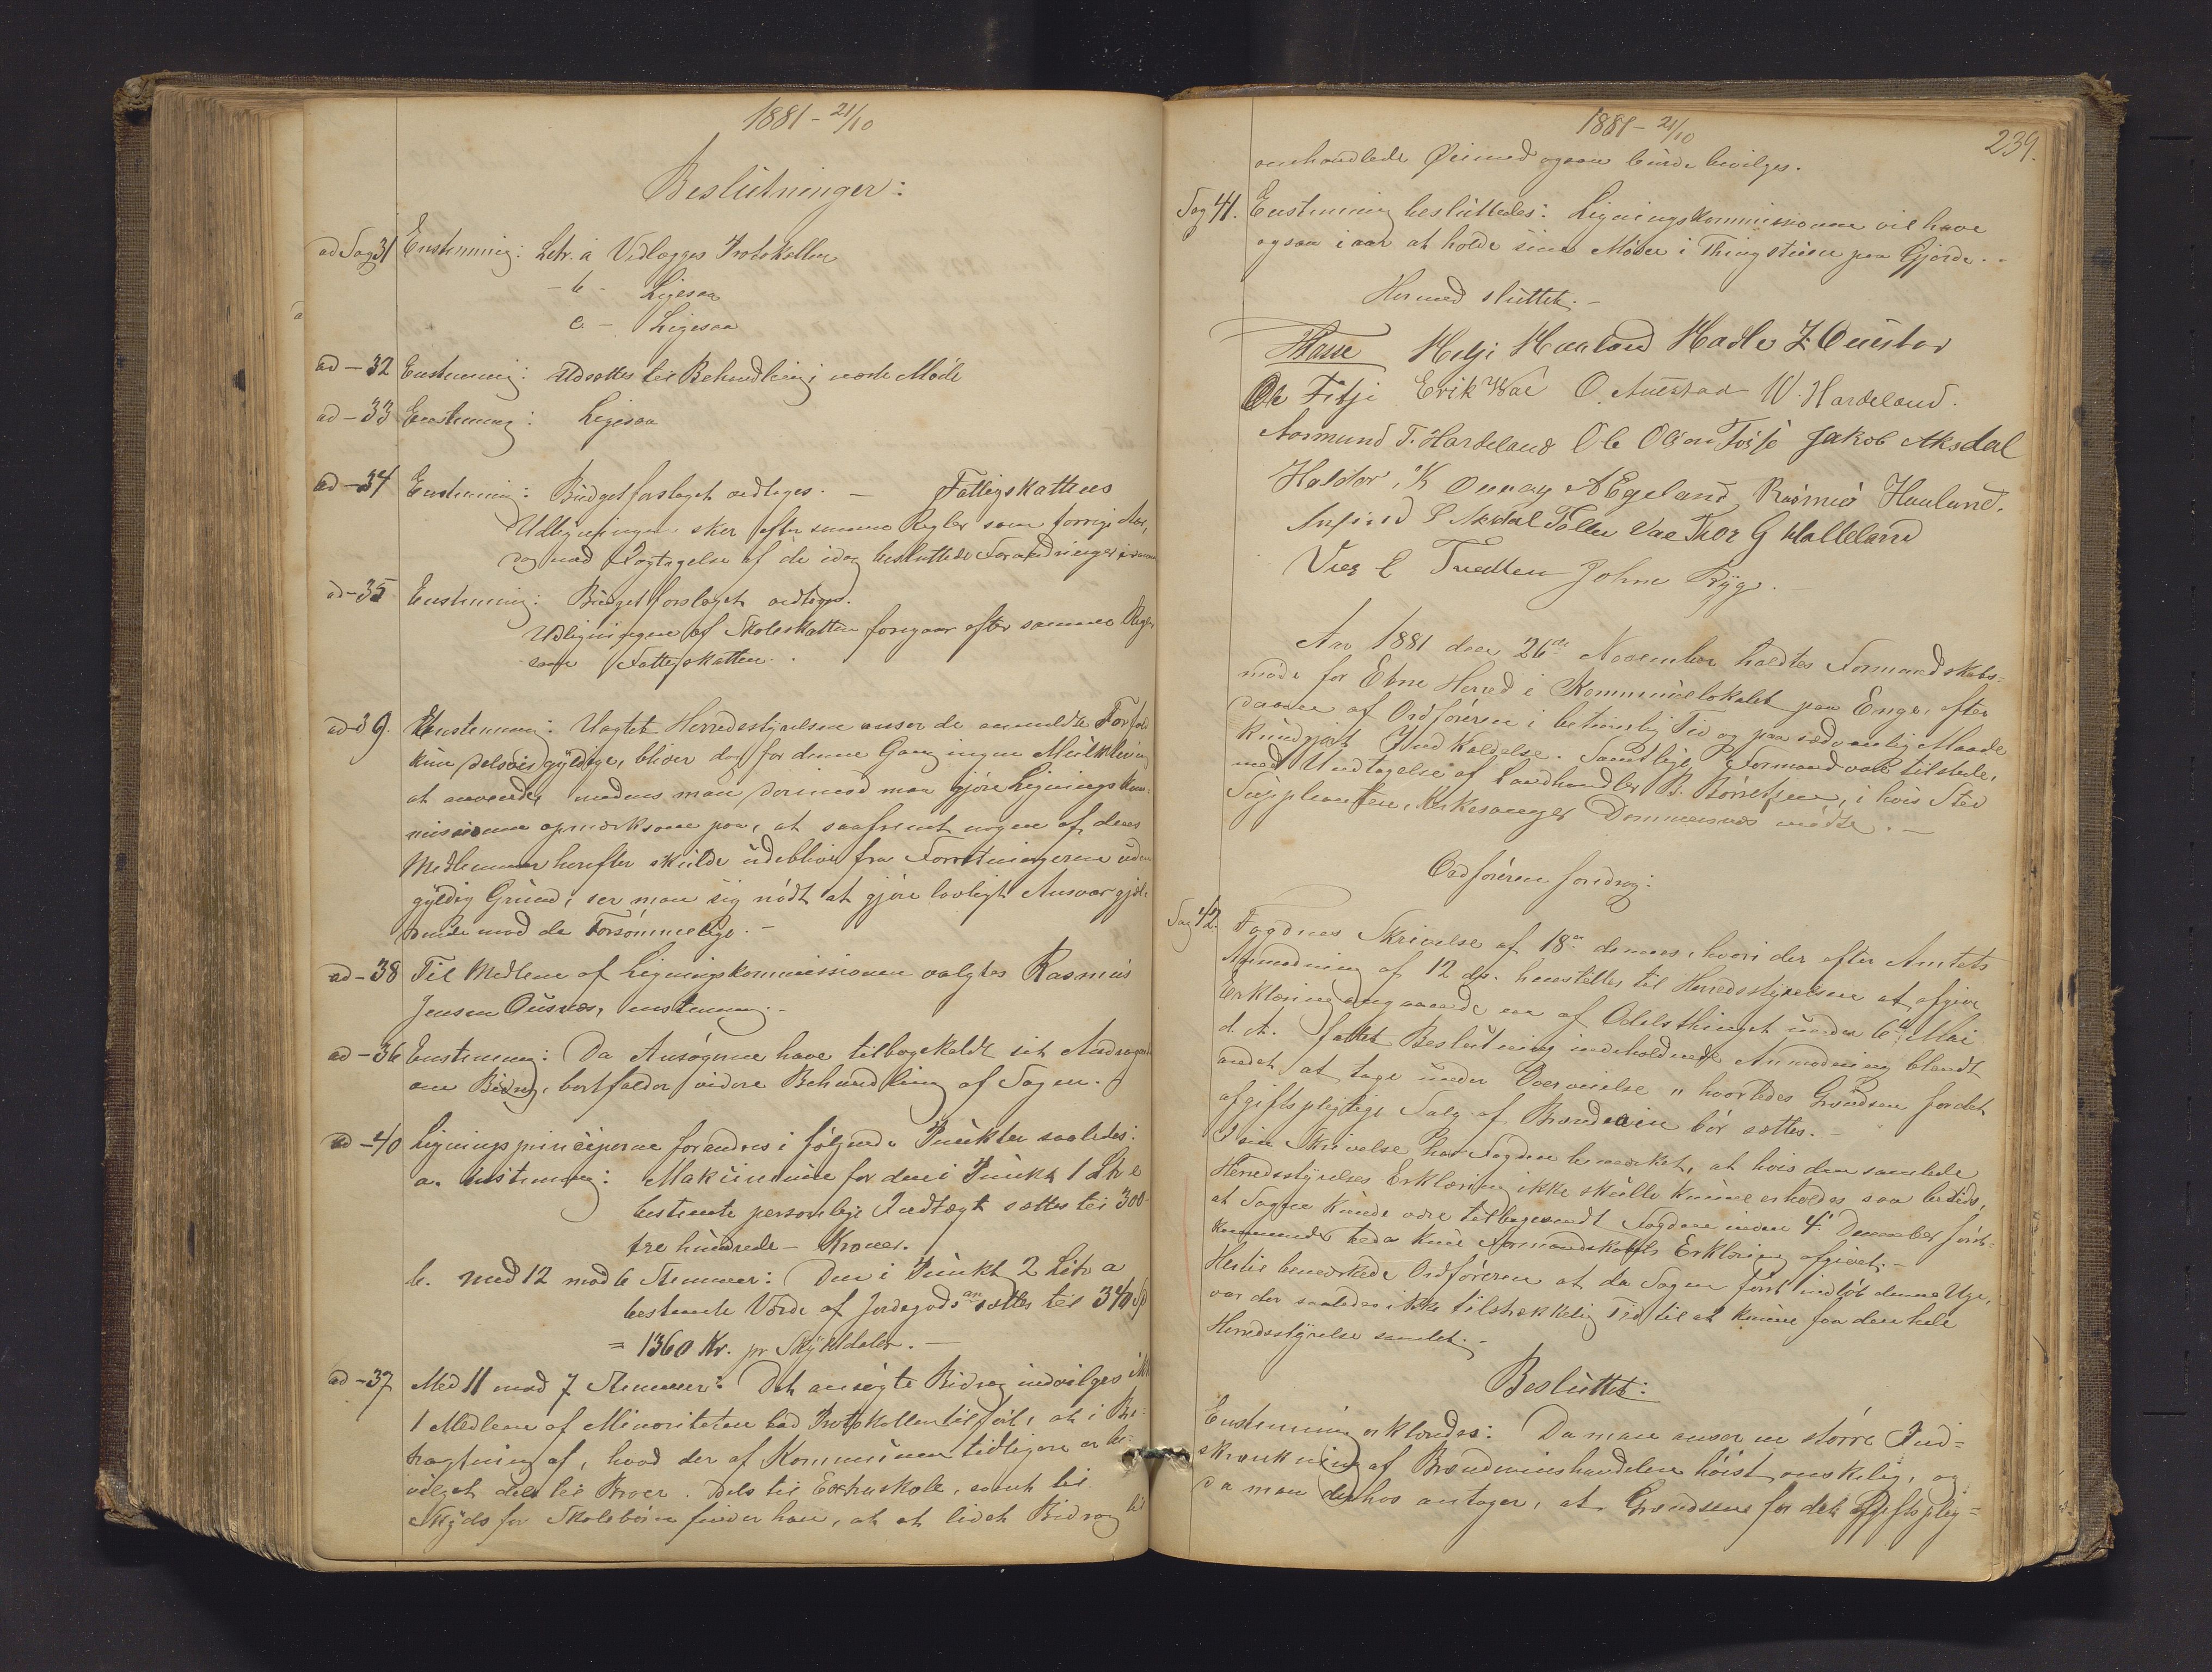 1881 - 21/10
Beslutninger:
ad Sag 31 Enstemmig: Litr. a Vedlægges Protokollen
- b - Ligesaa
c - Ligesaa
ad - 32 Enstemmig: Udsættes til Behandling i næste Møde
ad - 33 Enstemmig: Ligesaa
ad - 34 Enstemmig: Budgetforslaget vedtages. — Fattigskattens
Udligningen sker efter samme Regler som forrige Aar,
dog med Iagttagelse af de idag besluttede Forandringer
ad - 35 Enstemmig: Budgetforslaget vedtages.
Udligningen af Skoleskatten foregaar efter samme Regler
som Fattigskatten.
ad - 39. Enstemmig: Uagtet Herredsstyrelsen anser de anmeldte Forfald
kun delvis gyldige, bliver dog for denne Gang ingen Mulktering
at anvende, medens man derimod maa gjøre Ligningskom-
missionen opmærksom paa, at saafremt nogen af dens
Medlemmer herefter skulde udeblive fra Forretningerne uden
gyldig Grund, ser man sig nødt at gjøre lovligt Ansvar gjæl-
dende mod de Forsømmelige. -
ad - 38 Til Medlem af Ligningskommissionen valgtes Rasmus
Jensen Øusnes, enstemmig. -
ad - 36 Enstemmig: Da Ansøgerne have tilbagekaldt sit Andragende
om Bidrag, bortfalder videre Behandling af Sagen.
ad - 40 Ligningsprinciperne forandres i følgende Punkter saaledes:
a. Enstemmig: Maksimum for den i Punkt 1 Litr e
bestemte personlige Indtægt sættes til 300 -
tre hundrede - Kroner.
b. med 12 mod 6 Stemmer: Den i Punkt 2 Litr a
bestemte Værdi af Jordegods ansættes til 340 Sp
= 1360 Kr. pr Skylddaler. -
ad - 37 Med 11 mod 7 Stemmer: Det ansøgte Bidrag indvilges ikke
1 Medlem af Minoriteten bad Protokollen tilført, at i Be-
tragtning af, hvad der af Kommunen tidligere er be-
vilget dels til Broer, dels til Extraskole, samt til
Skyds for Skolebørn finder han, at et lidet Bidrag til
1881 - 21/10
239.
omhandlede Øiemed ogsaa burde bevilges.
Sag 41. Enstemmig besluttedes: Ligningskommissionen vil have
ogsaa i aar at holde sine Møder i Thingstuen paa Gjerde. -
Hermed sluttet. -
Helje Haaland Hadle Z Øustbø
Ole Fitje Erik Vae O. Austad W. Hardeland.
Aasmund T. Hardeland Ole Olson Tøsse Jakob Aksdal
Haldor K Ournay A Egeland Rasmus Haaland.
Anfind P Aksdal Tollev Vae Thor G Halleland
Vier E Tvedten John Ryg.
Aar 1881 den 26de November holdtes Formandskabs-
møde for Etne Herred i Kommunelokalet paa Enge, efter
daanne af Ordføreren i betimelig Tid og paa sædvanlig Maade
kundgjort Indkaldelse. Samtlige Formænd var tilstede,
med Undtagelse af Landhandler B. Børretzen, i hvis Sted
Suppleanten, Kirkesanger Dommersnes mødte. -
Ordføreren foredrog:
Sag 42. Fogdens Skrivelse af 18de dennes, hvori der efter Amtets
Anmodning af 12 ds. henstilles til Herredsstyrelsen at afgive
Erklæring angaaende en af Odelsthinget under 6te Mai
d. A. fattet Beslutning indeholdende Anmodning blandt
andet at tage under Overveielse "hvorledes Grændsen for det
afgiftspligtige Salg af Brændevin bør sættes. - "
I sin Skrivelse har Fogden bemærket, at hvis den samlede
Herredsstyrelses Erklæring ikke skulle kunne erholdes saa betids,
at Sagen kunde være tilbagesendt Fogden inden 4de December først-
kommende, beder kun Formandskabets Erklæring afgivet. -
Hertil bemærkede Ordføreren at da Sagen først indløb denne Uge,
var der saaledes ikke tilstrækkelig Tid til at kunne faa den hele
Herredsstyrelse samlet. -
Besluttet:
Enstemmig erklæredes: Da man anser en større Ind-
skrænkning af Brændevinshandelen høist ønskelig, og
da man derhos antager, at Grændsen for det afgiftsplig-